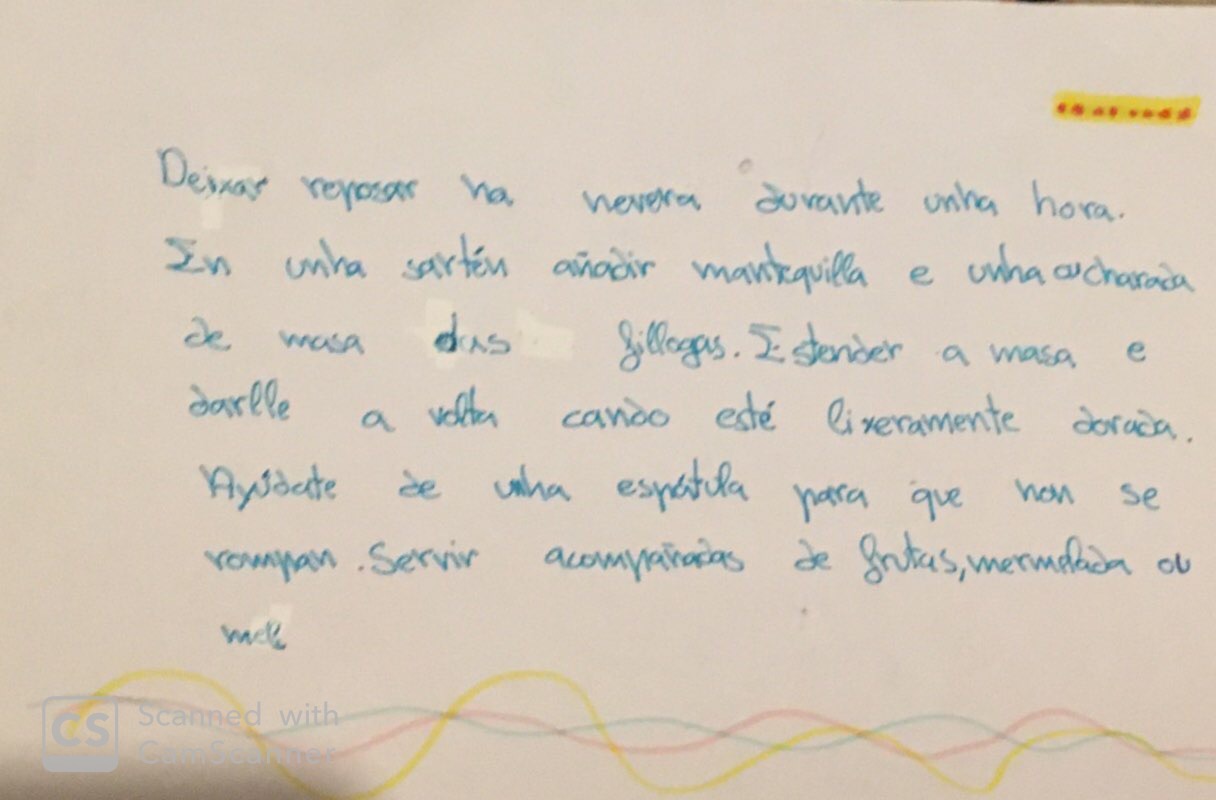 Deixar reposar na nevera durante unha hora.
En unha sartén añadir mantequilla e unha cucharada
de masa das fillogas. Estender a masa e
darlle a volta cando esté lixeramente dorada.
Ayúdate de unha espátula para que non se
rompan. Servir acompañadas de frutas, mermelada ou
mel
Scanned with
CS
CamScanner